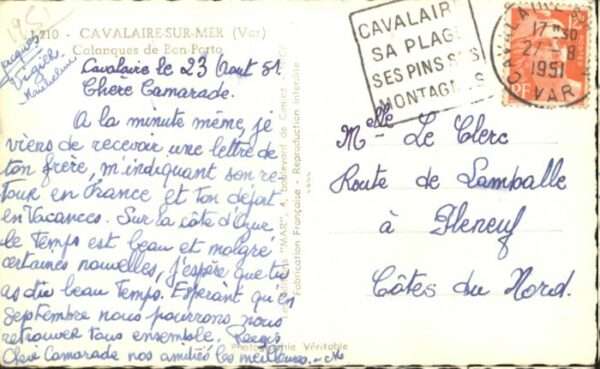 1951
Jacques
210 - CAVALAIRE-SUR-MER (Var)
Calanques de Bon-Porto
Cavalaire le 23 Aout 51.
Chere Camarade.
A la minute même, je
viens de recevoir une lettre de
ton frère, m'indiquant son re-
tour en France et ton départ
en Vacances. Sur la côte d'Azur
le Temps est beau et malgré
certaines nouvelles, j'espère que tu
as du beau Temps. Esperant qu'en
septembre nous pourrons nous
retrouver tous ensemble. Reçois
Chère Camarade nos amitiés les meilleures.-
Les Editions "MAR", 4, boulevard de Cimiez
Fabrication Française - Reproduction interdite
Photographie Véritable
CAVALAIRE
SA PLAGE
SES PINS SES
MONTAGNES
CAVALAIRE S
17 H 30
27 - 8
1951
VAR
RF
Melle Le Clerc
Route de Lamballe
à Pleneuf
Côtes du Nord.